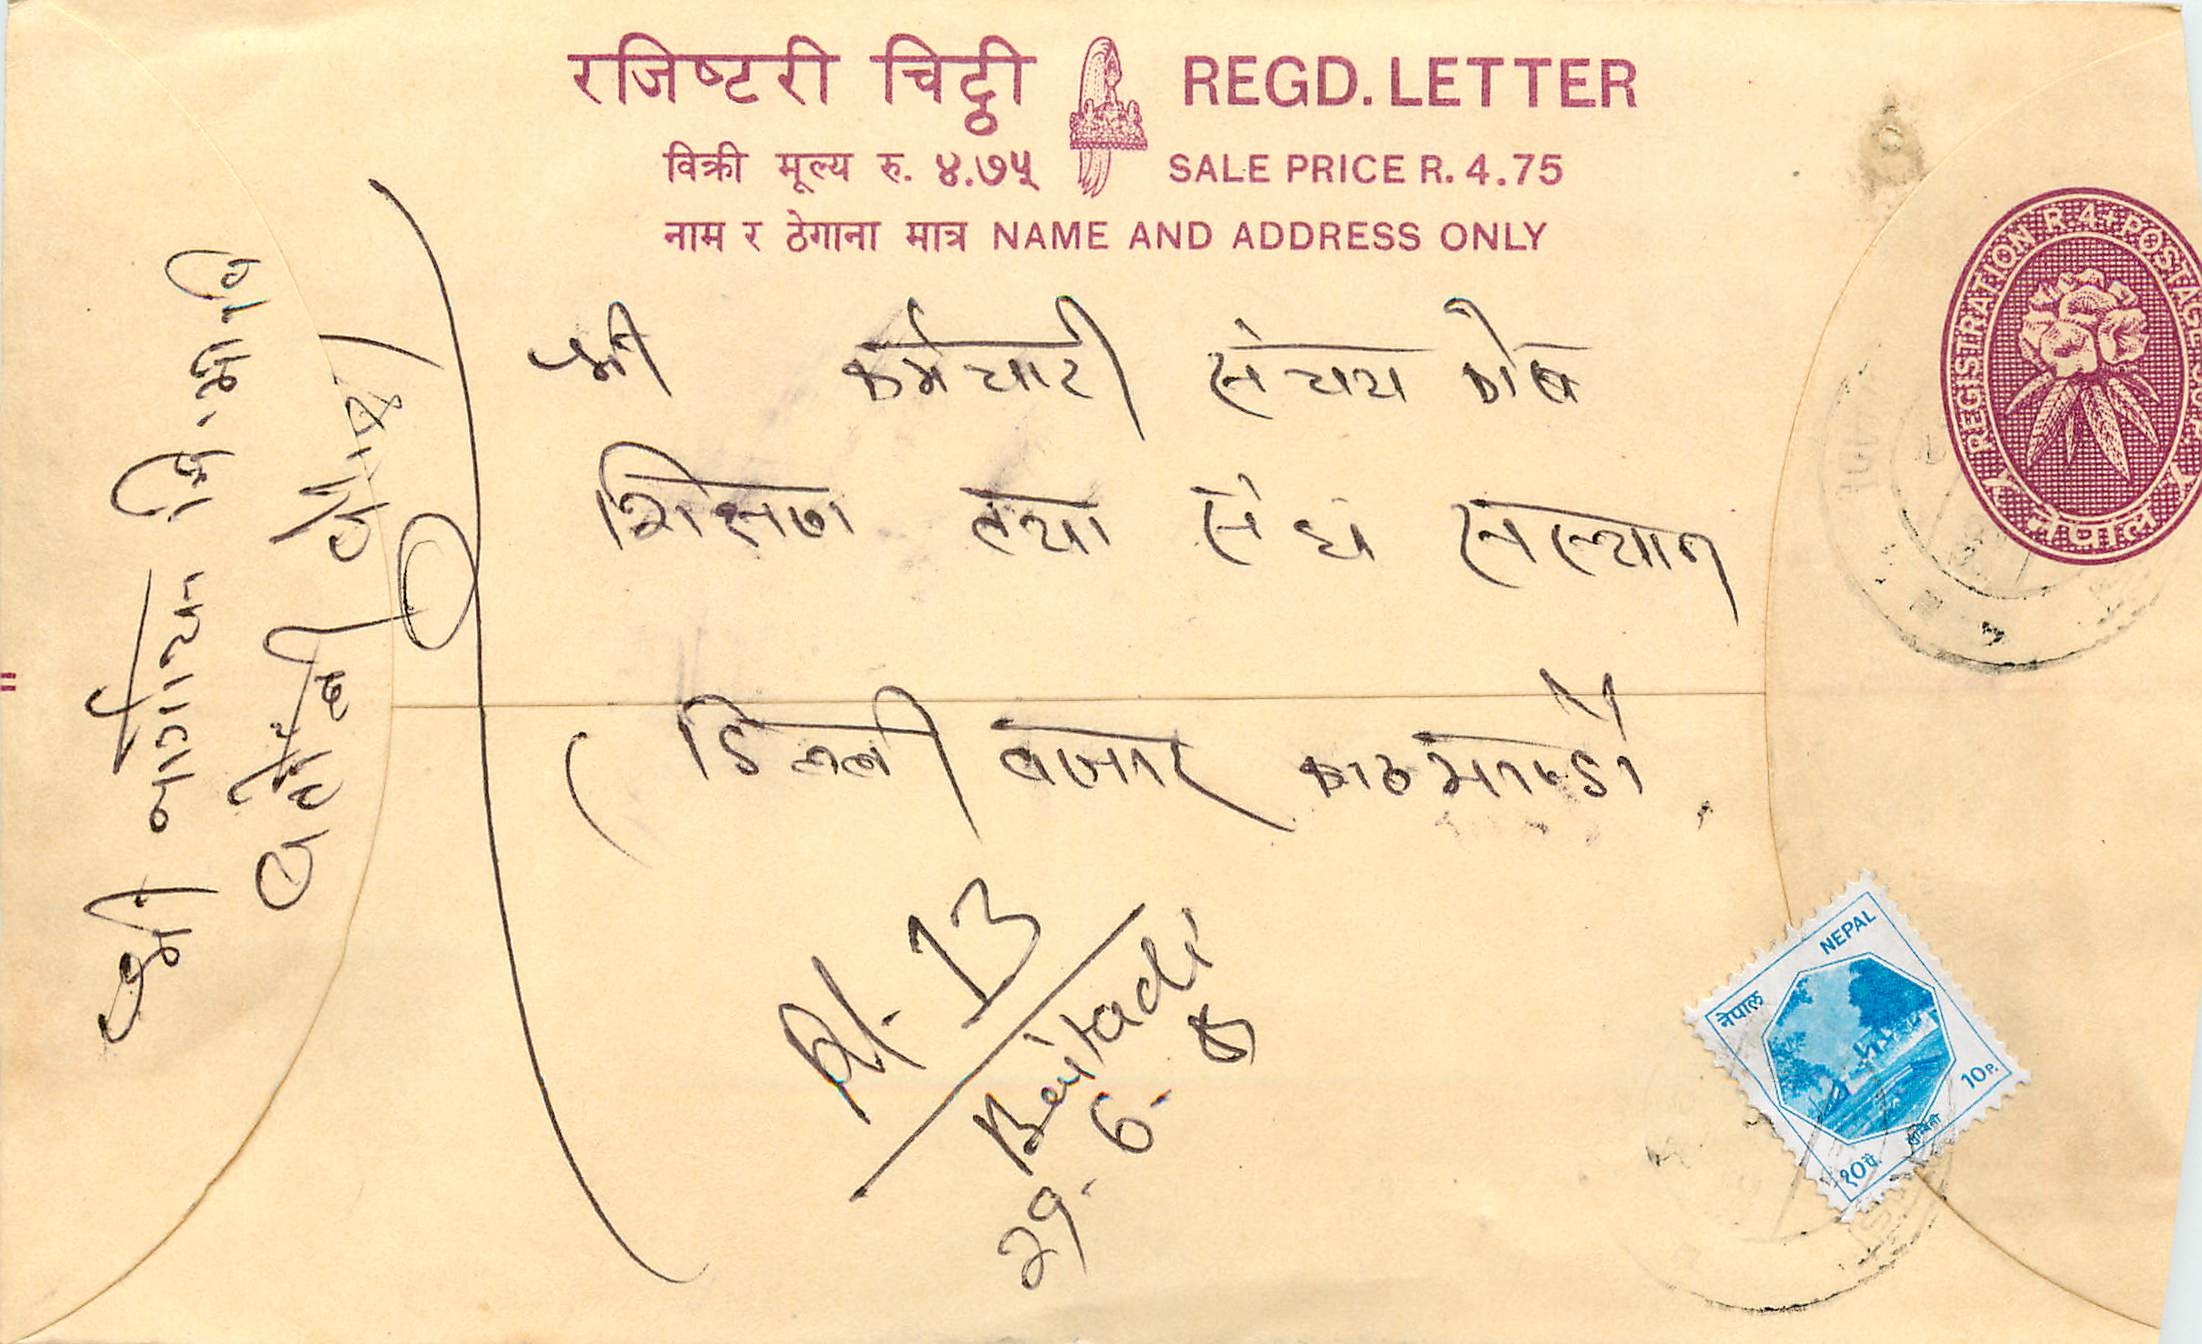 रजिष्टरी चिट्ठी REGD. LETTER
विक्री मूल्य रु. ४.७५ SALE PRICE R. 4.75
नाम र ठेगाना मात्र NAME AND ADDRESS ONLY
REGISTRATION R.4+POSTAGE
नेपाल
श्री कर्मचारी संचय कोष
शिक्षण तथा संघ संस्थान
(डिल्ली बजार काठमाण्डौ
Rl. 13
Baitadi
29. 6.
श्री
बैतडी
नेपाल NEPAL
10P.
लुम्बिनी
१०पै.